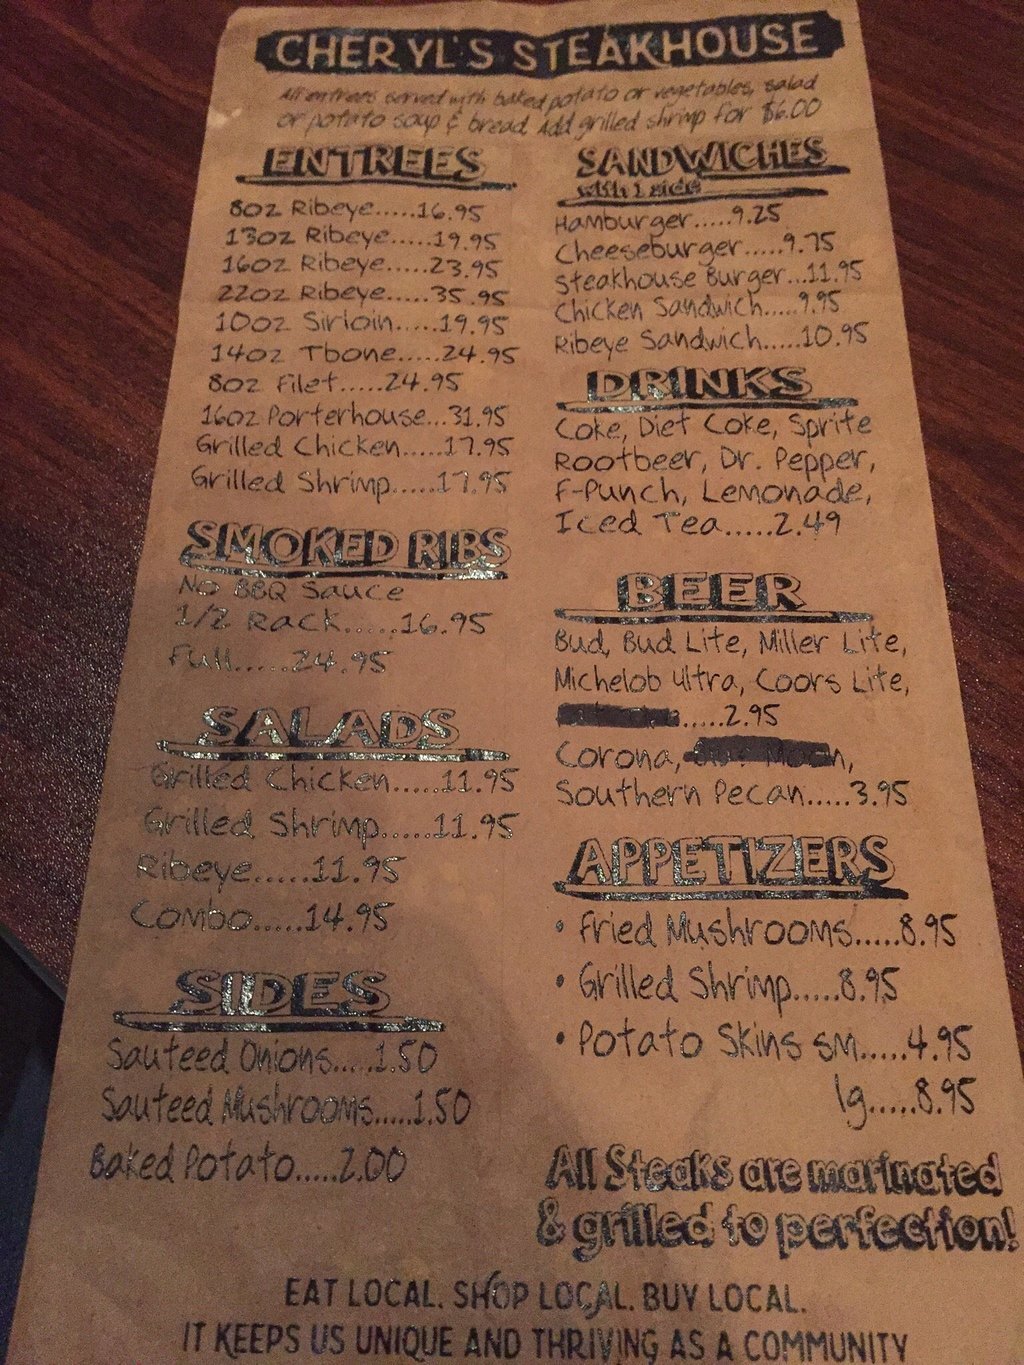 CHERYL'S STEAKHOUSE
All entrees served with baked potato or vegetables, salad
or potato soup & bread. Add grilled shrimp for $6.00
ENTREES
8oz Ribeye.....16.95
13oz Ribeye.....19.95
16oz Ribeye.....23.95
22oz Ribeye.....35.95
10oz Sirloin.....19.95
14oz Tbone.....24.95
8oz Filet.....24.95
16oz Porterhouse...31.95
Grilled Chicken.....17.95
Grilled Shrimp.....17.95
SMOKED RIBS
No BBQ Sauce
1/2 Rack.....16.95
Full.....24.95
SALADS
Grilled Chicken.....11.95
Grilled Shrimp.....11.95
Ribeye.....11.95
Combo.....14.95
SIDES
Sauteed Onions.....1.50
Sauteed Mushrooms.....1.50
Baked Potato.....2.00
SANDWICHES
with 1 side
Hamburger.....9.25
Cheeseburger.....9.75
Steakhouse Burger...11.95
Chicken Sandwich.....9.95
Ribeye Sandwich.....10.95
DRINKS
Coke, Diet Coke, Sprite
Rootbeer, Dr. Pepper,
F-Punch, Lemonade,
Iced Tea.....2.49
BEER
Bud, Bud Lite, Miller Lite,
Michelob Ultra, Coors Lite,
.....2.95
Corona, Moon,
Southern Pecan.....3.95
APPETIZERS
• Fried Mushrooms.....8.95
• Grilled Shrimp.....8.95
• Potato Skins sm.....4.95
lg.....8.95
All Steaks are marinated
& grilled to perfection!
EAT LOCAL. SHOP LOCAL. BUY LOCAL.
IT KEEPS US UNIQUE AND THRIVING AS A COMMUNITY